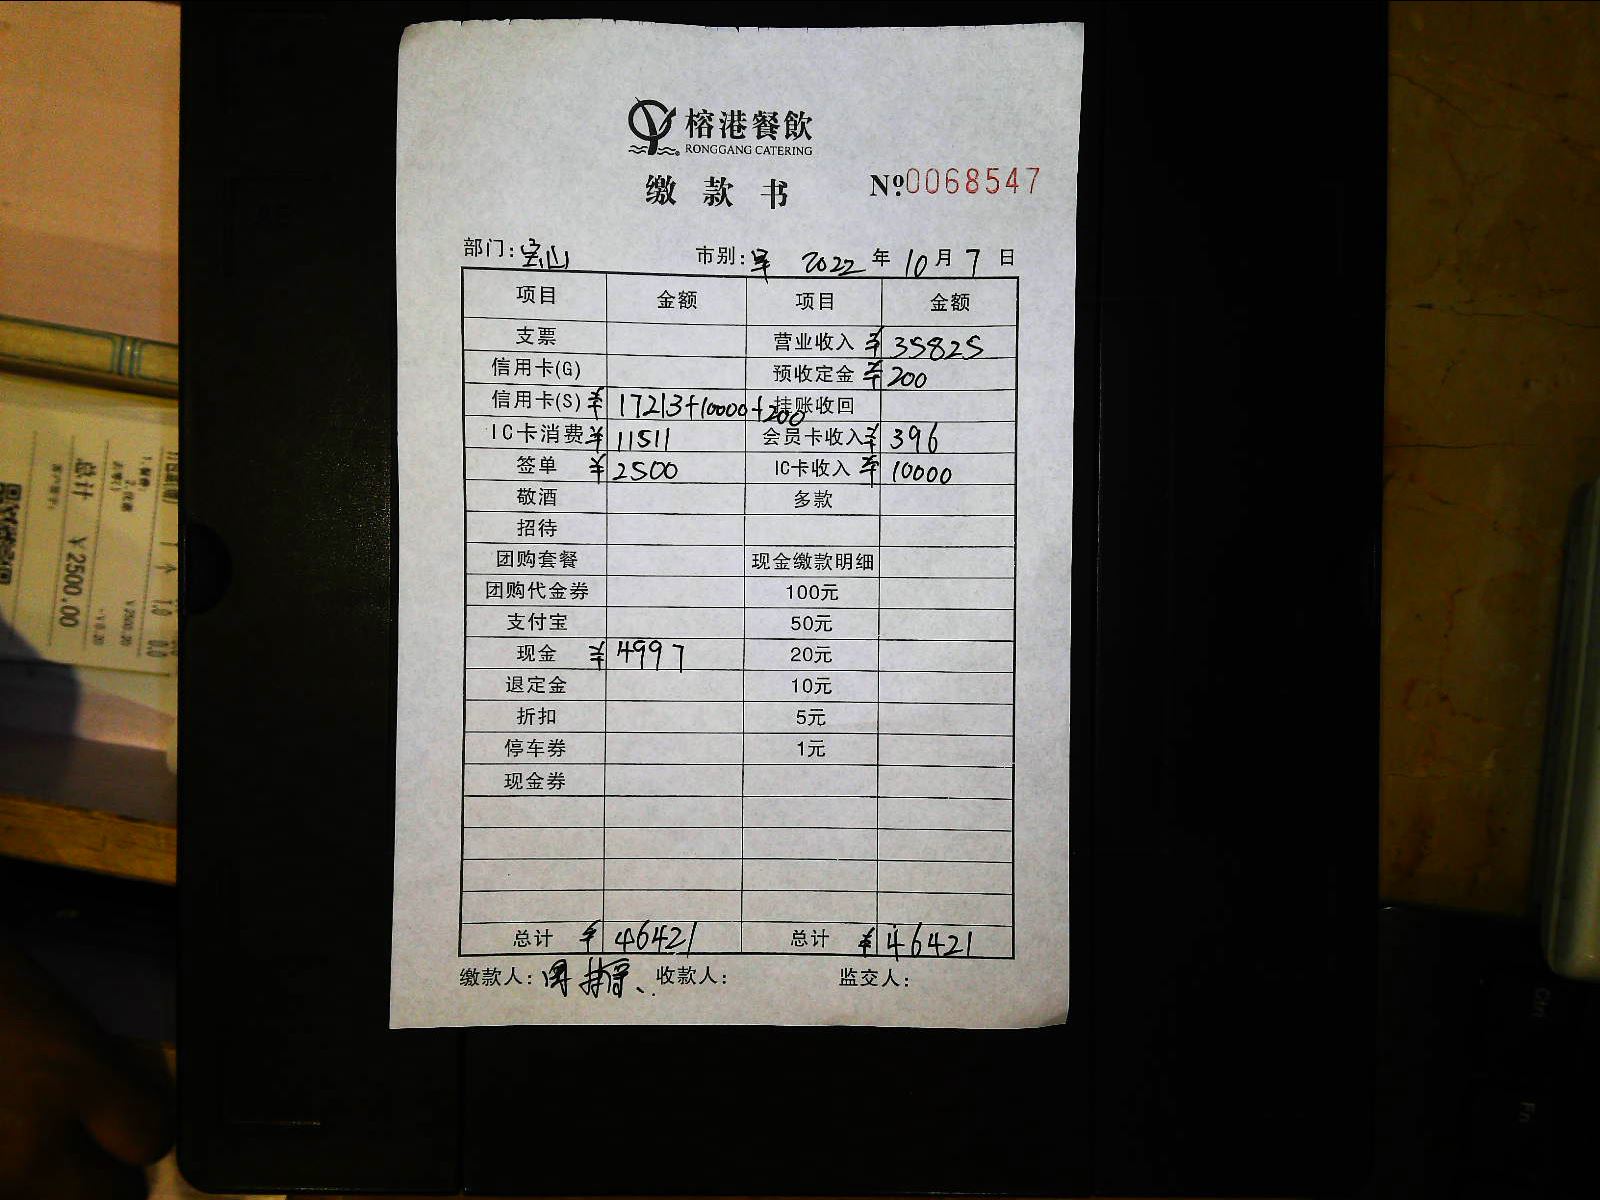 榕港餐飲
RONGGANG CATERING
缴款书 №0068547
部门:宝山 市别:早 2022年10月7日
项目 金额 项目 金额
支票 营业收入 ¥35825
信用卡(G) 预收定金 ¥200
信用卡(S) ¥17213+10000+200 挂账收回
IC卡消费 ¥11511 会员卡收入 ¥396
签单 ¥2500 IC卡收入 ¥10000
敬酒 多款
招待
团购套餐 现金缴款明细
团购代金券 100元
支付宝 50元
现金 ¥4997 20元
退定金 10元
折扣 5元
停车券 1元
现金券
总计 ¥46421 总计 ¥46421
缴款人: 收款人: 监交人:
总计 ¥2500.00